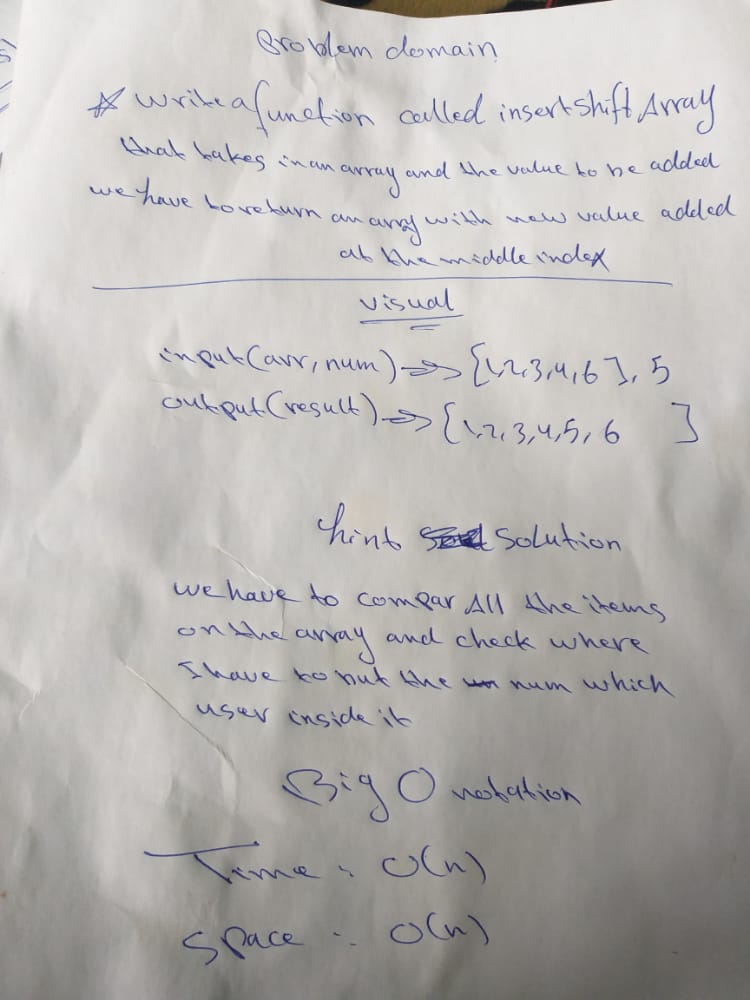 Problem domain
* write a function called insertshiftArray
that takes in an array and the value to be added
we have to return an arry with new value added
at the middle index
visual
input(arr, num) => [1,2,3,4,6], 5
output(result) => [1,2,3,4,5,6 ]
hint solution
we have to compar All the items
on the array and check where
I have to put the num which
user inside it
Big O notation
Time : O(n)
space : O(n)